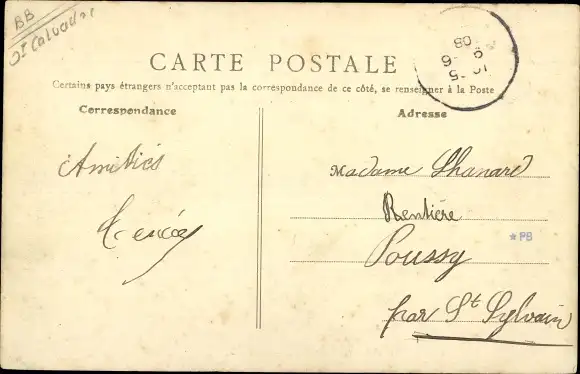 BB
CARTE POSTALE
Certains pays étrangers n'acceptant pas la correspondance de ce côté, se renseigner à la Poste
Correspondance
Amitiés
Adresse
Madame Lhanard
Rentière
Poussy
*PB
par St Sylvain